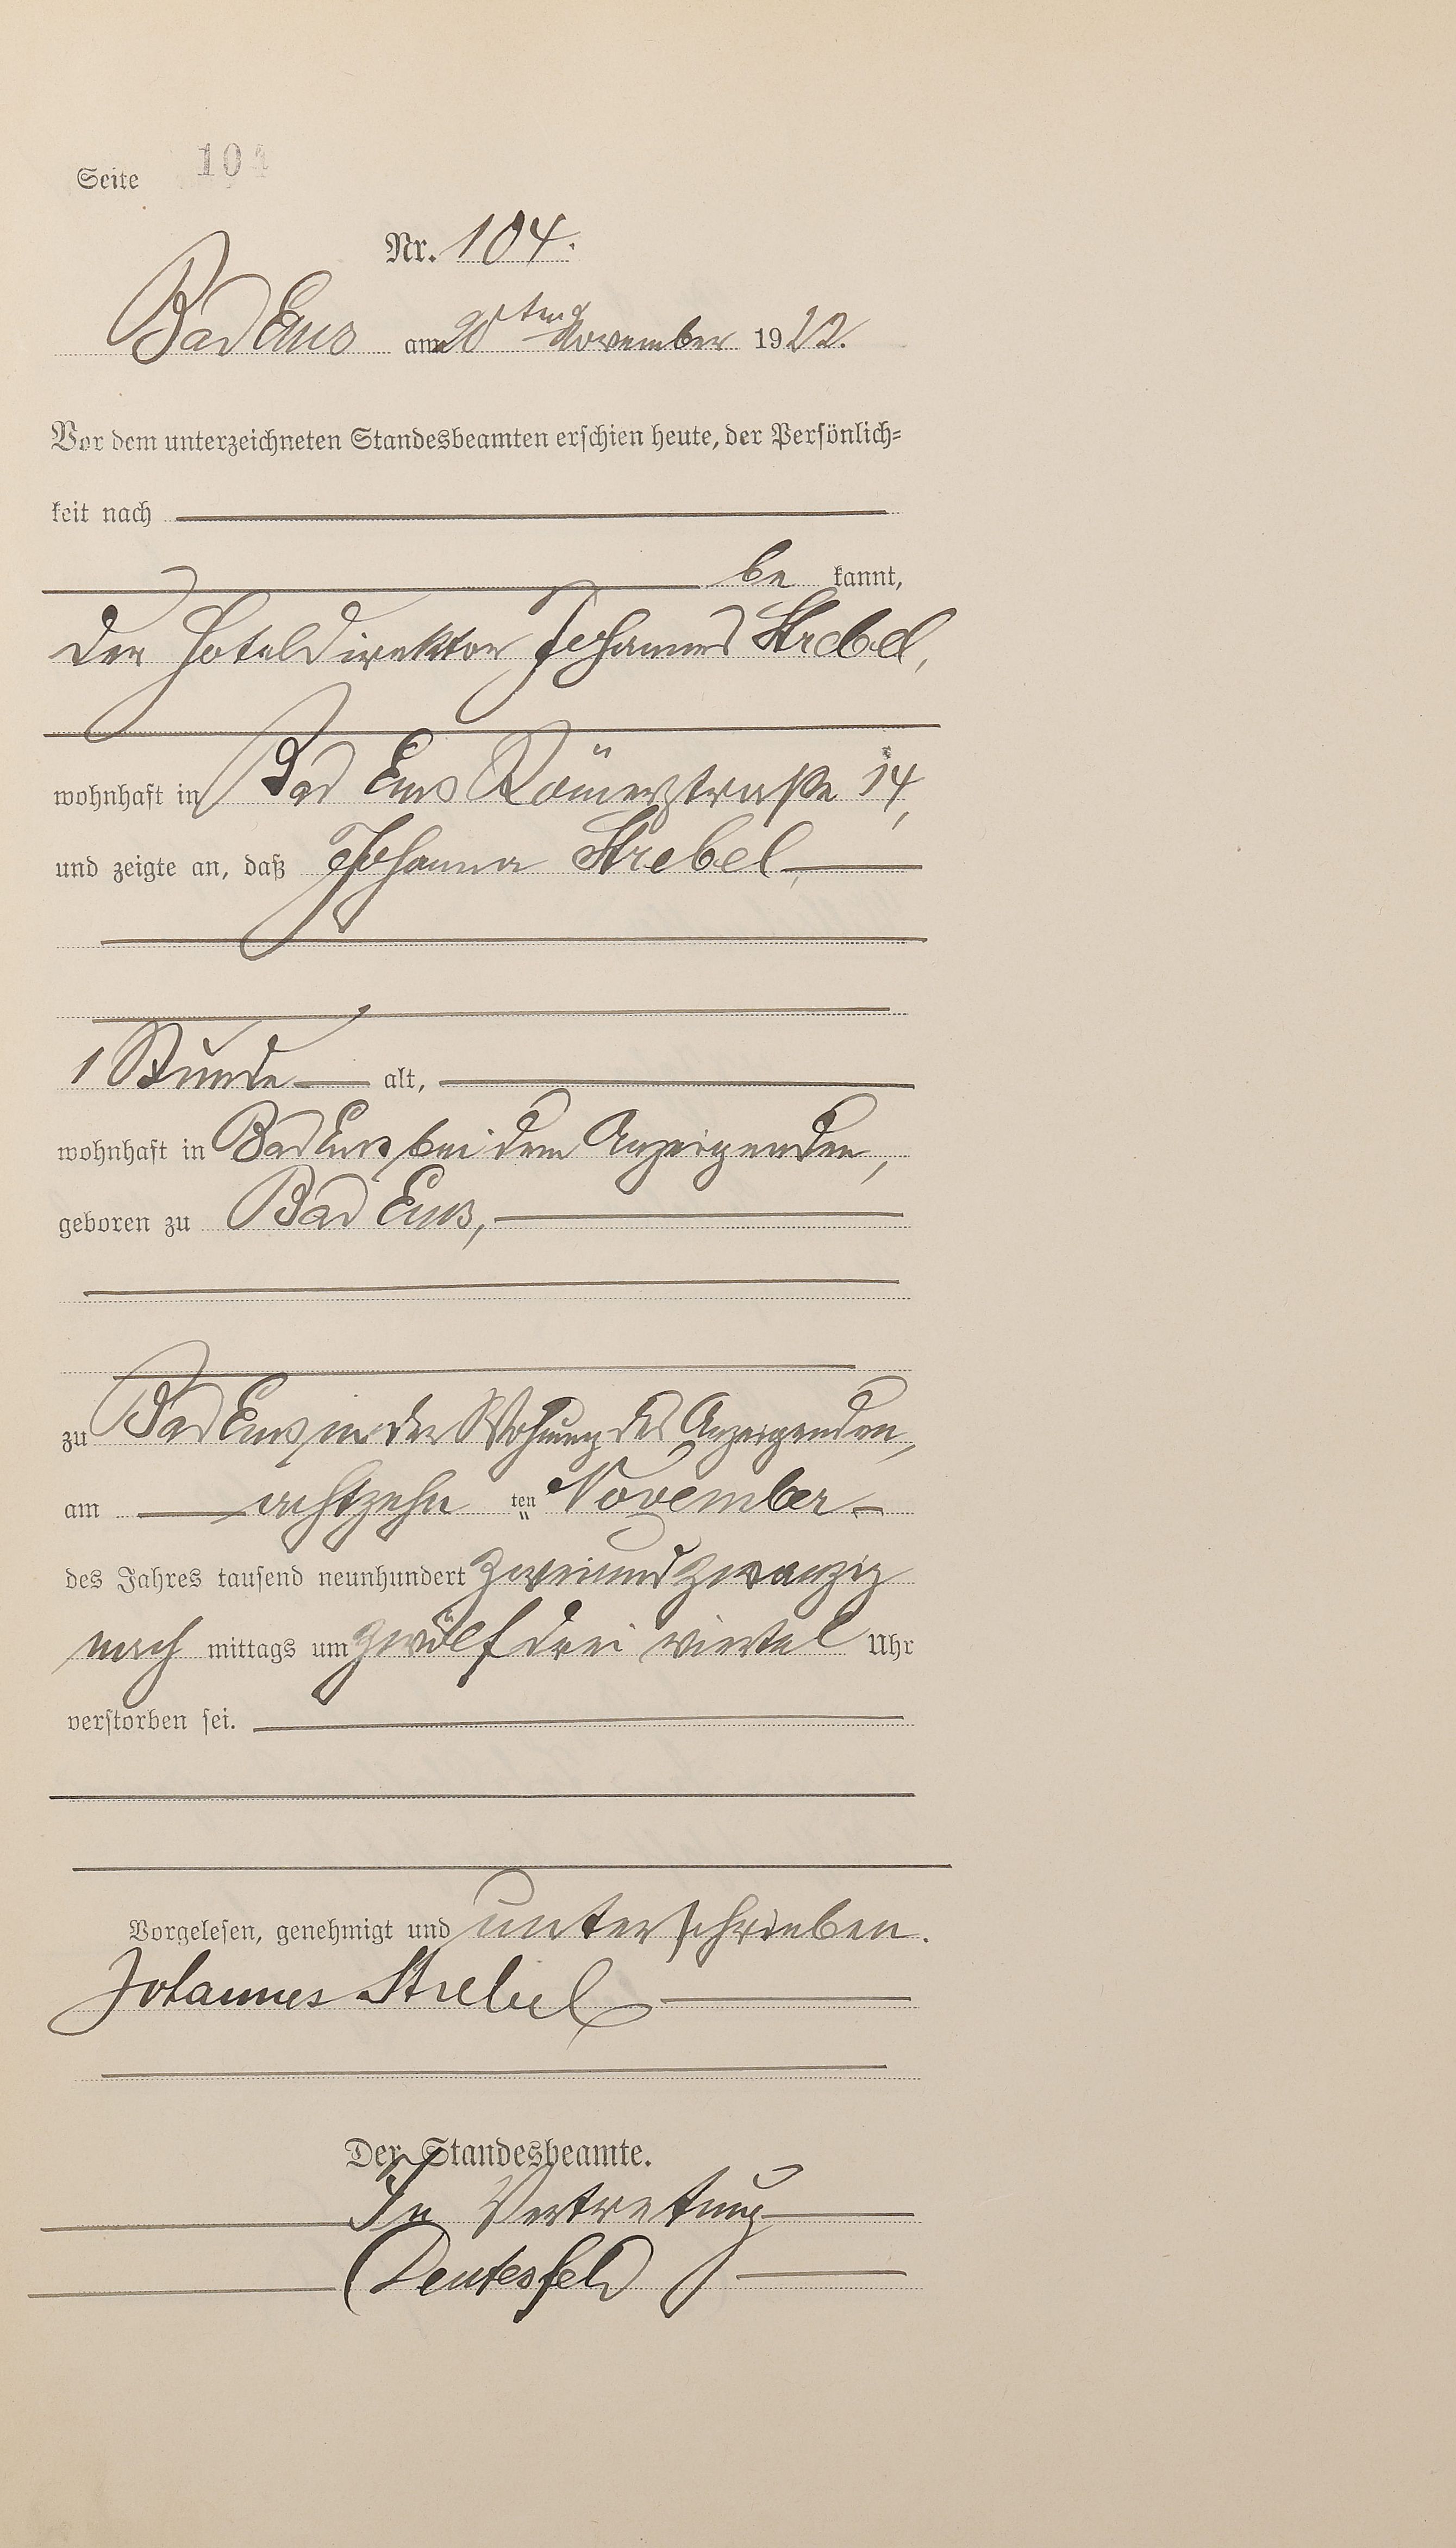 Seite 104
Nr. 104.
Bad Ems am 20ten November 1922.
Vor dem unterzeichneten Standesbeamten erschien heute, der Persönlich-
keit nach
be kannt,
der Hoteldirektor Johannes Strebel,
wohnhaft in Bad Ems Römerstraße 14,
und zeigte an, daß Johanna Strebel,
1 Stunde alt,
wohnhaft in Bad Ems bei dem Anzeigenden,
geboren zu Bad Ems,
zu Bad Ems in der Wohnung des Anzeigenden,
am achtzehn ten November
des Jahres tausend neunhundert zweiundzwanzig
nach mittags um zwölf drei viertel Uhr
verstorben sei.
Vorgelesen, genehmigt und unterschrieben.
Johannes Strebel
Der Standesbeamte.
In Vertretung
Deutesfeld